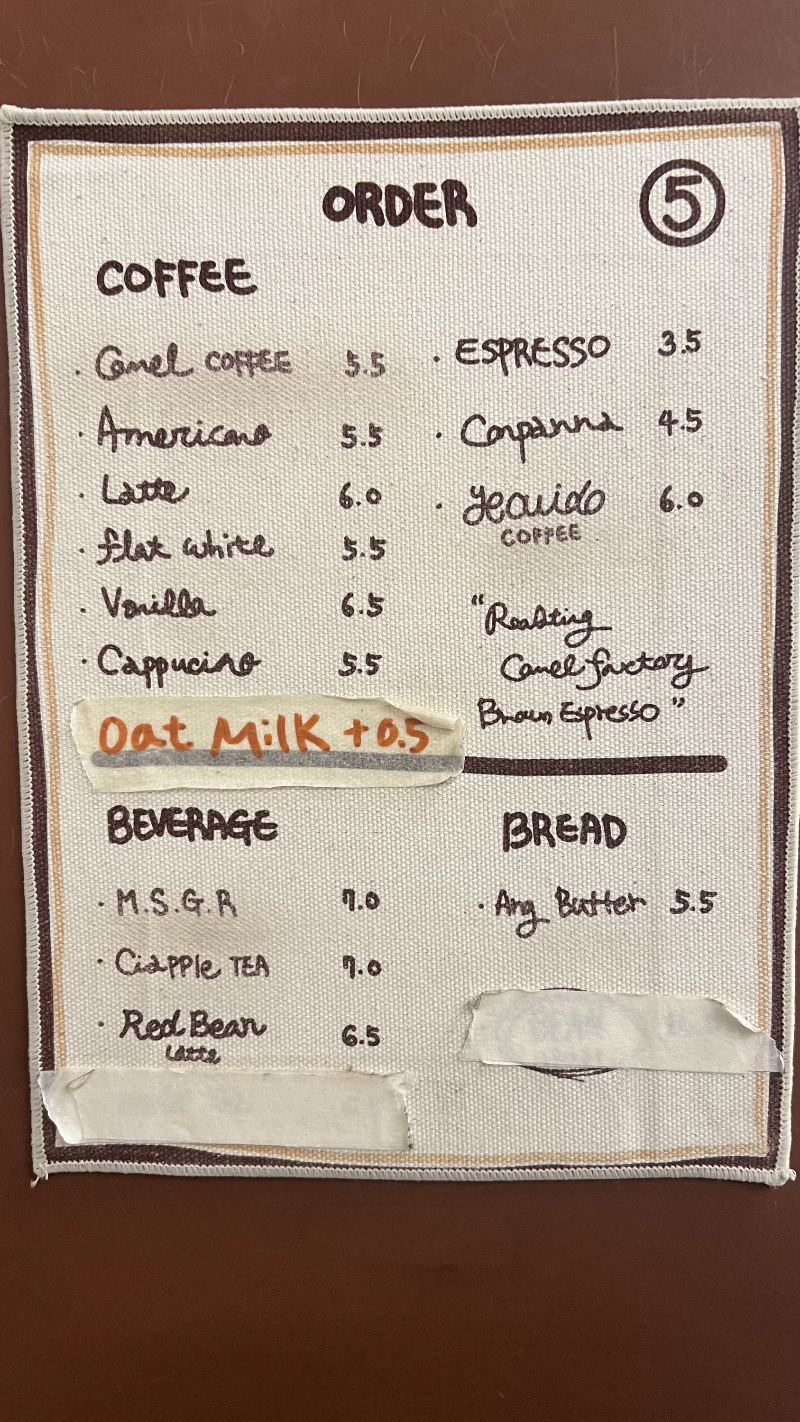 ORDER
⑤
COFFEE
· Camel COFFEE 5.5
· Americano 5.5
· Latte 6.0
· flat white 5.5
· Vanilla 6.5
· Cappucino 5.5
Oat Milk +0.5
· ESPRESSO 3.5
· Conpanna 4.5
· Jeauido 6.0
COFFEE
"Roasting
Camel factory
Brown Espresso"
BEVERAGE
· M.S.G.R 7.0
· Ciapple TEA 7.0
· Red Bean 6.5
Latte
BREAD
· Ang Butter 5.5